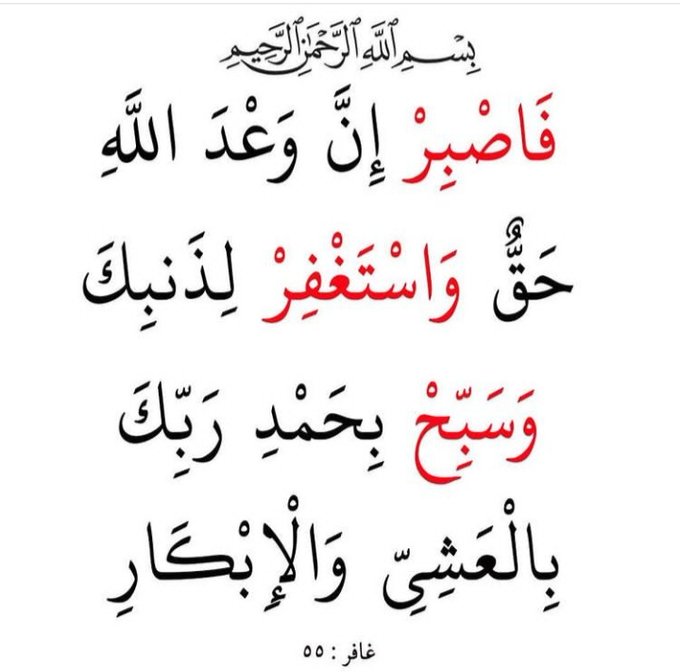 بِسْمِ ٱللَّهِ ٱلرَّحْمَٰنِ ٱلرَّحِيمِ
فَاصْبِرْ إِنَّ وَعْدَ اللَّهِ
حَقٌّ وَاسْتَغْفِرْ لِذَنبِكَ
وَسَبِّحْ بِحَمْدِ رَبِّكَ
بِالْعَشِيِّ وَالْإِبْكَارِ
غافر : ٥٥